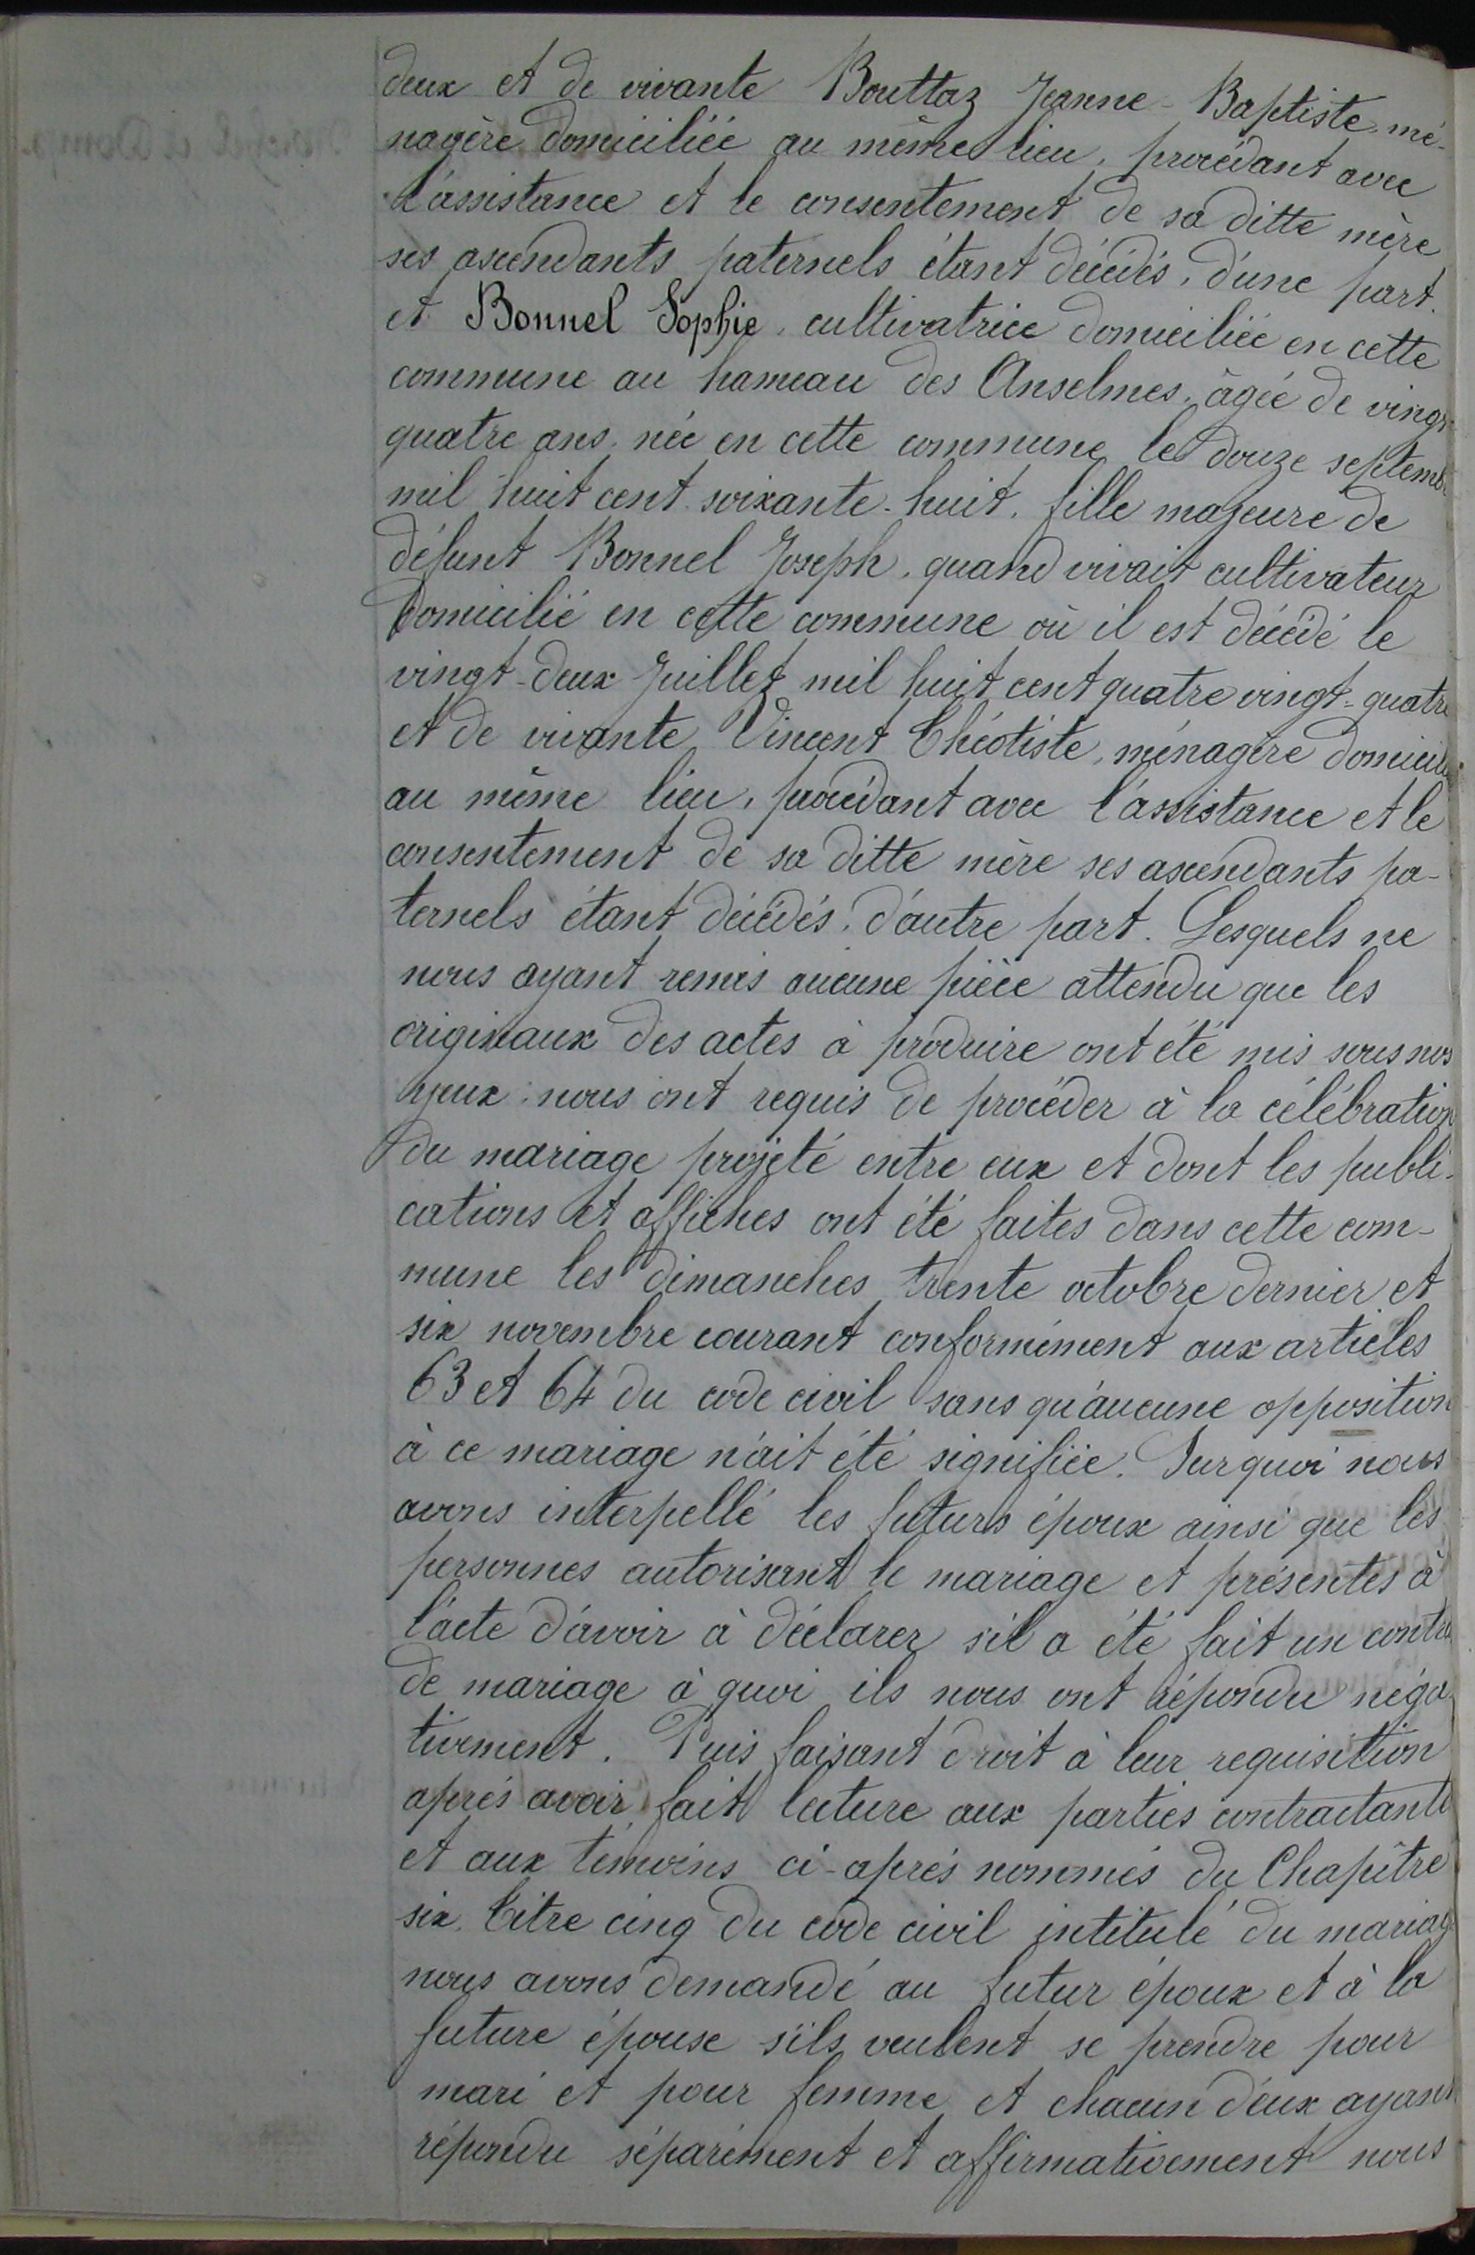 deux et de vivante Bouttaz Jeanne-Baptiste, mé-
nagère domiciliée au même lieu, procédant avec
l'assistance et le consentement de sa ditte mère
ses ascendants paternels étant décédés, d'une part.
et Bonnel Sophie, cultivatrice domiciliée en cette
commune au hameau des Anselmes, âgée de vingt
quatre ans, née en cette commune le douze septemb
mil huit cent soixante-huit, fille majeure de
défunt Bonnel Joseph, quand vivait cultivateur
domicilié en cette commune où il est décédé le
vingt-deux Juillet mil huit cent quatre vingt-quatre
et de vivante Vincent Chéotiste, ménagère domicili
au même lieu, procédant avec l'assistance et le
consentement de sa ditte mère ses ascendants pa-
ternels étant décédés, d'autre part. Lesquels ne
nous ayant remis aucune pièce attendu que les
originaux des actes à produire ont été mis sous nos
yeux, nous ont requis de procéder à la célébration
du mariage projeté entre eux et dont les publi-
cations et affiches ont été faites dans cette com-
mune les dimanches trente octobre dernier et
six novembre courant conformément aux articles
63 et 64 du code civil sans qu'aucune opposition
à ce mariage n'ait été signifiée. Sur quoi nous
avons interpellé les futurs époux ainsi que les
personnes autorisant le mariage et présentes à
l'acte d'avoir à déclarer s'il a été fait un contra
de mariage à quoi ils nous ont répondu néga
tivement. Puis faisant droit à leur requisition
après avoir fait lecture aux parties contractante
et aux témoins ci-après nommés du Chapître
six, titre cinq du code civil intitulé du mariag
nous avons demandé au futur époux et à la
future épouse s'ils veulent se prendre pour
mari et pour femme et chacun d'eux ayant
répondu séparément et affirmativement nous